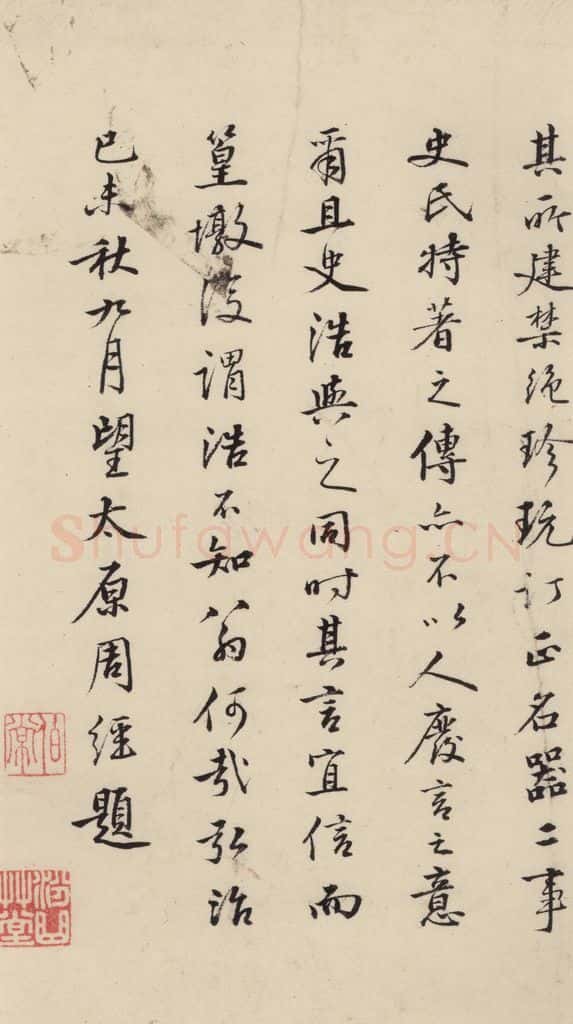 其所建禁絶珍玩訂正名器二事
史氏特著之傳亦不以人廢言之意
爾且史浩與之同时其言宜信而
篁墩復谓浩不知翁何哉弘治
己未秋九月望太原周經題
伯常
Shufawang.CN